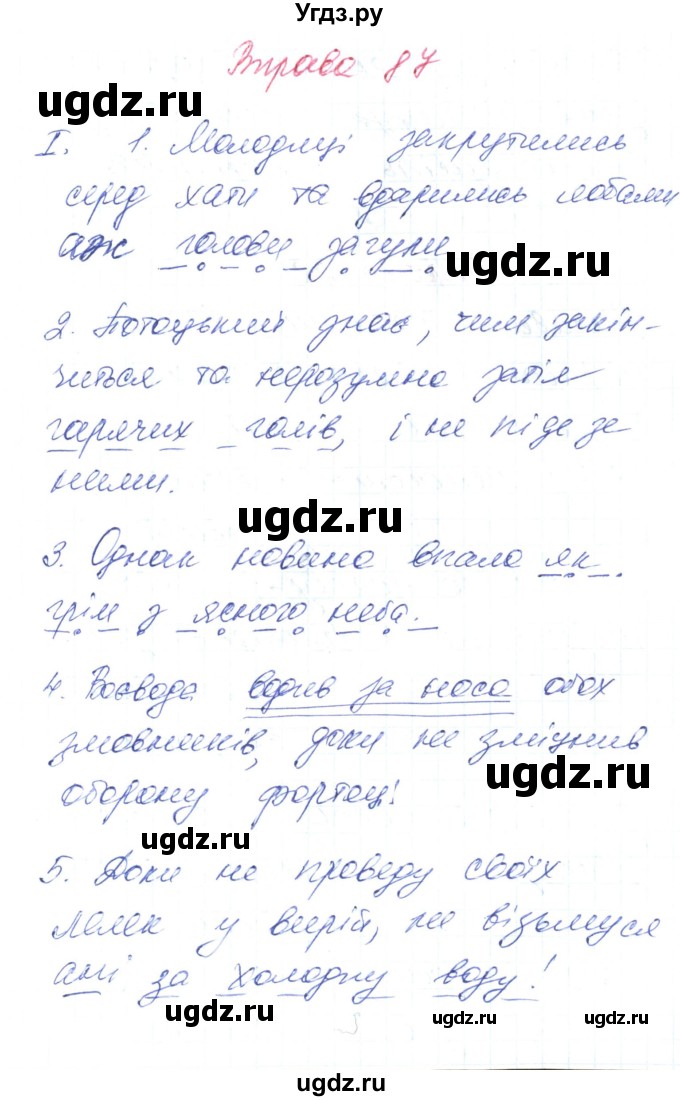 Угдз.ру
Вправа 87
ugdz.ru
I. 1. Молодиці закрутились
серед хати та вдарились лобами
аж голови загули
ugdz.ru
2. Потоцький знає, чим закін-
читься та нерозумна затія
гарячих голів, і не піде за
ними.
ugdz.ru
3. Однак новина впала як
грім з ясного неба.
4. Воєвода водив за носа обох
змовників, доки не зміцнив
ugdz.ru
оборону фортеці.
ugdz.ru
5. Доки не проведу своїх
лелек у вирій, не візьмуся
ані за холодну воду!
ugdz.ru
ugdz.ru
ugdz.ru